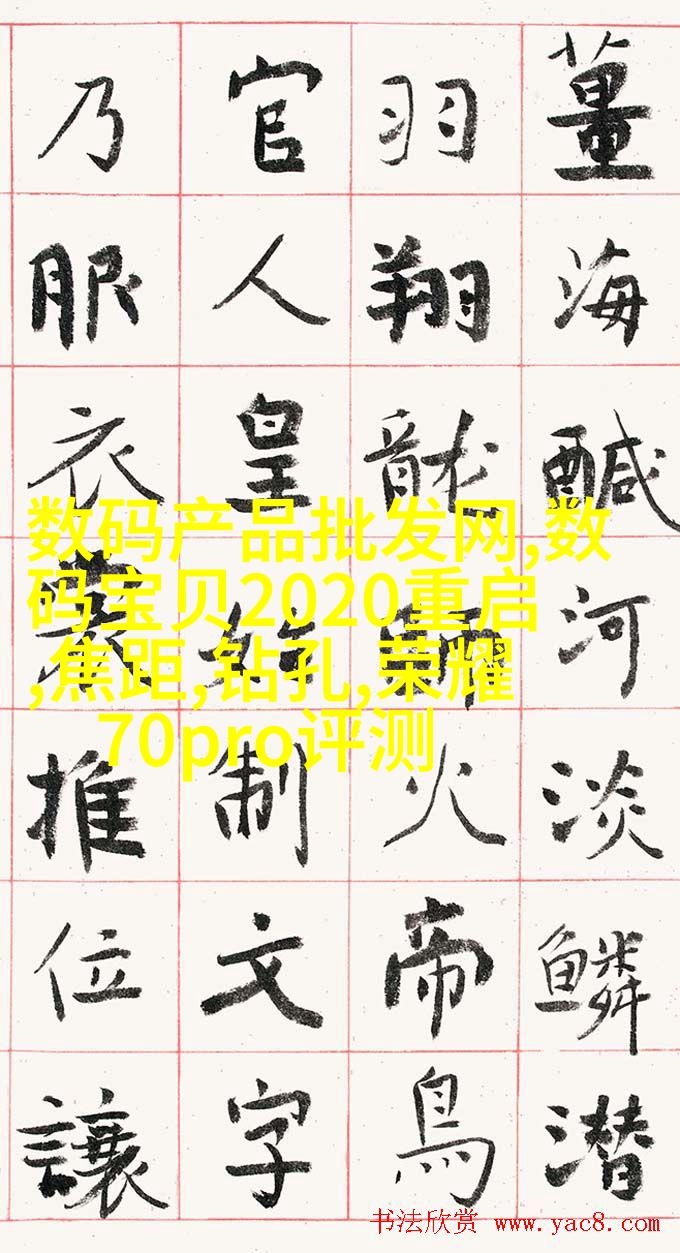 薑海鹹河淡鱗潛
羽翔龍師火帝鳥
官人皇始制文字
乃服衣裳推位讓
数码产品批发网,数
码宝贝2020重启
,焦距,钻孔,荣耀
70pro评测
书法欣赏 www.yac8.com